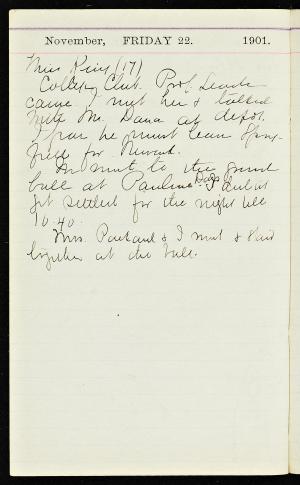 November, FRIDAY 22. 1901.
Miss King (17)
College Club. Prof.
came I met her & talked
with Mr. Dana at depot.
I fear he must leave Spring-
field for Newark.
to the grand
ball at Pauline Days I did not
get settled for the night till
10.40.
Mrs. Packard & I went &
together at the ball.